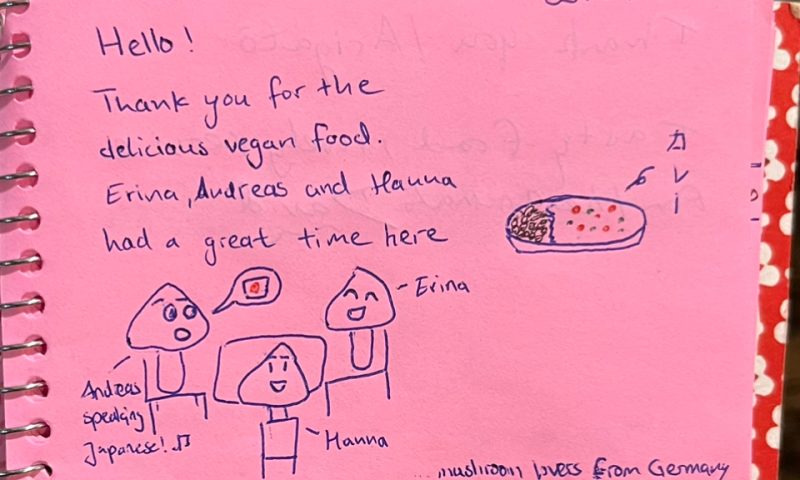 Hello!
Thank you for the
delicious vegan food.
Erina, Andreas and Hanna
had a great time here
カレー
Erina
Andreas
speaking
Japanese! ♫
Hanna
...mushroom lovers from Germany